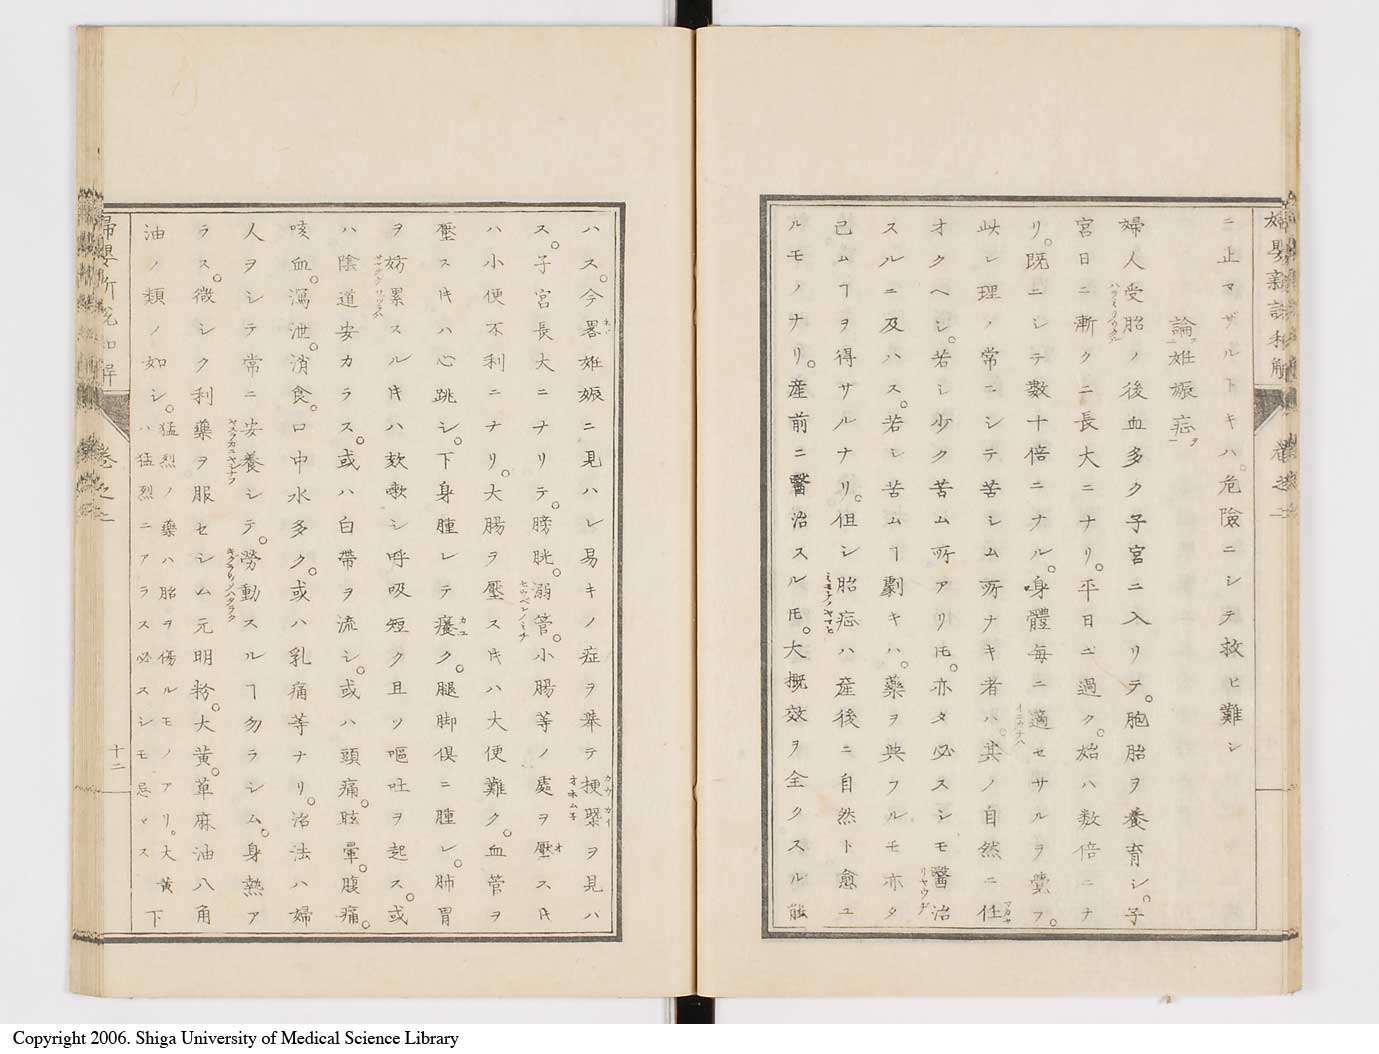 ニ止マザルトキハ。危險ニシテ救ヒ難シ
論妊娠症ヲ
婦人受胎ノ後血多ク子宮ニ入リテ。胞胎ヲ養育シ。子
宮日ニ漸クニ長大ニナリ。平日ニ過ク。始ハ数倍ニナ
リ。既ニシテ数十倍ニナル。身體毎ニ適セサルヲ覺フ。
此レ理ノ常ニシテ苦シム所ナキ者ハ。其ノ自然ニ任
オクヘシ。若シ少ク苦ム所アリ𪜈。亦タ必スシモ醫治
スルニ及ハス。若シ苦ムヿ劇キハ。藥ヲ與フルモ亦タ
已ムヿヲ得サルナリ。但シ胎症ハ産後ニ自然ト愈ユ
ルモノナリ。産前ニ醫治スル𪜈。大概效ヲ全クスル能
婦嬰新説和解 卷之二
ハス。今畧妊娠ニ見ハレ易キノ症ヲ舉テ梗槩ヲ見ハ
ス。子宮長大ニナリテ。膀胱。溺管。小腸等ノ處ヲ壓ス𪜈
ハ小便不利ニナリ。大腸ヲ壓ス𪜈ハ大便難ク。血管ヲ
壓ス𪜈ハ心跳シ。下身腫レテ癢ク。腿脚倶ニ腫レ。肺胃
ヲ妨累スル𪜈ハ欬嗽シ呼吸短ク且ツ嘔吐ヲ起ス。或
ハ陰道安カラス。或ハ白帶ヲ流シ。或ハ頭痛。眩暈。腹痛。
咳血。瀉泄。消食。口中水多ク。或ハ乳痛等ナリ。治法ハ婦
人ヲシテ常ニ安養シテ。勞動スルヿ勿ラシム。身熱ア
ラス。微シク利藥ヲ服セシム元明粉。大黄。萆麻油八角
油ノ類ノ如シ。猛烈ノ藥ハ胎ヲ傷ルモノアリ。大黄下
ハ猛烈ニアラス必スシモ忌マス
婦嬰新説和解 卷之二
十二
Copyright 2006. Shiga University of Medical Science Library